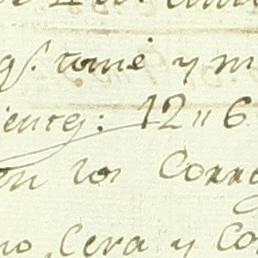 qs. tomé y m
ientes: 12 " 6
on los Corre
no, Cera y Co